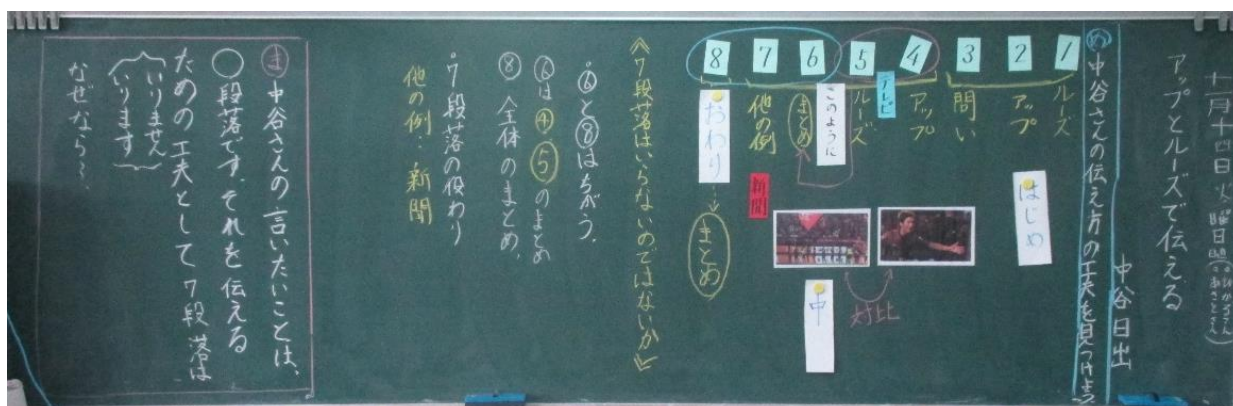 十一月十四日 火曜日
アップとルーズで伝える
中谷日出
め 中谷さんの伝え方の工夫を見つけよう
1 ルーズ
2 アップ
はじめ
3 問い
4 アップ
テレビ
5 ルーズ
対比
このように
6 まとめ
中
7 他の例
新聞
8 おわり
まとめ
《7段落はいらないのではないか》
・⑥と⑧はちがう。
⑥は④⑤のまとめ
⑧ 全体のまとめ、
・7段落の役わり
他の例・新聞
ま 中谷さんの言いたいことは、
〇段落です。それを伝える
ための工夫として7段落は
いりません
いります
なぜなら〜、